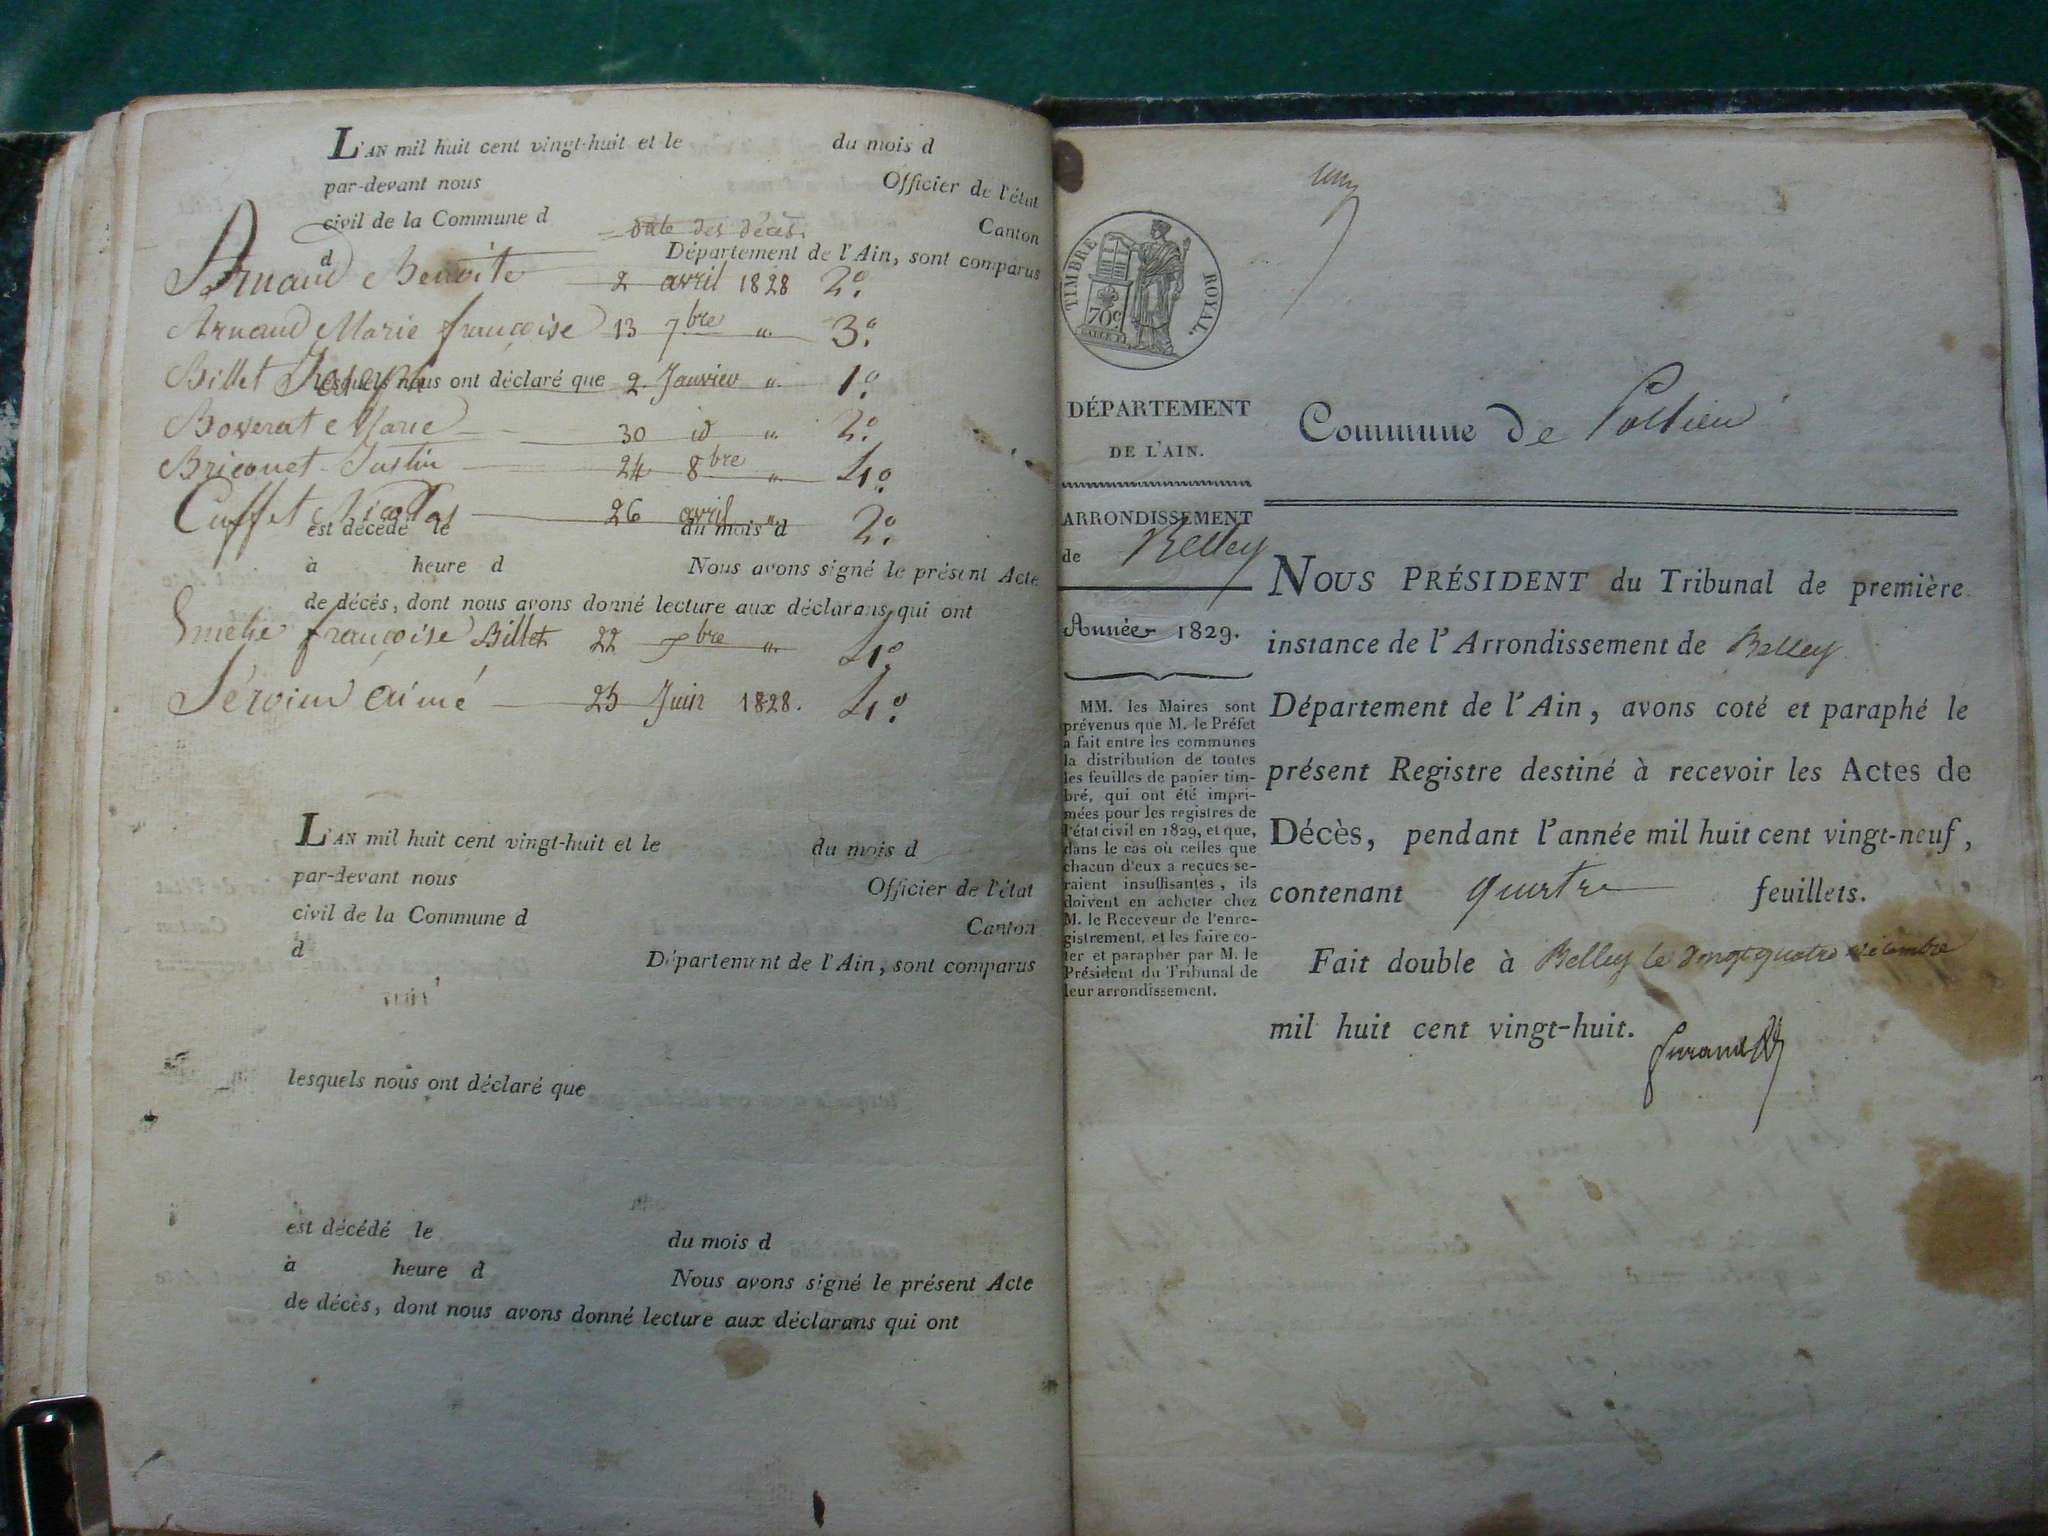 L'AN mil huit cent vingt-huit et le du mois d
par-devant nous Officier de l'état
civil de la Commune d Canton
date des décès.
d Département de l'Ain, sont comparus
Arnaud Benoite 2 avril 1828 2°.
Arnaud Marie françoise 13 7bre " 3°.
Billet Joseph 2 Janvier " 1°.
lesquels nous ont déclaré que
Boverat Marie 30 id " 2°.
Bricouet Justin 24 8bre " 4°.
Cuffet Nicolas 26 avril " 2°.
est décédé le du mois d
à heure d Nous avons signé le présent Acte
de décès, dont nous avons donné lecture aux déclarans qui ont
françoise Billet 22 " 4°.
aimé 25 Juin 1828. 4°.
L'AN mil huit cent vingt-huit et le du mois d
par-devant nous Officier de l'état
civil de la Commune d Canton
d Département de l'Ain, sont comparus
lesquels nous ont déclaré que
est décédé le du mois d
à heure d Nous avons signé le présent Acte
de décès, dont nous avons donné lecture aux déclarans qui ont
TIMBRE ROYAL.
70c
DÉPARTEMENT
DE L'AIN.
ARRONDISSEMENT
de Belley
Année 1829.
MM. les Maires sont
prévenus que M. le Préfet
a fait entre les communes
la distribution de toutes
les feuilles de papier tim-
bré, qui ont été impri-
mées pour les registres de
l'état civil en 1829, et que,
dans le cas où celles que
chacun d'eux a reçues se-
raient insuffisantes, ils
doivent en acheter chez
M. le Receveur de l'enre-
gistrement, et les faire co-
ter et parapher par M. le
Président du Tribunal de
leur arrondissement.
Commune de Pollieu
NOUS PRÉSIDENT du Tribunal de première
instance de l'Arrondissement de Belley
Département de l'Ain, avons coté et paraphé le
présent Registre destiné à recevoir les Actes de
Décès, pendant l'année mil huit cent vingt-neuf,
contenant quatre feuillets.
Fait double à Belley le vingt quatre décembre
mil huit cent vingt-huit.